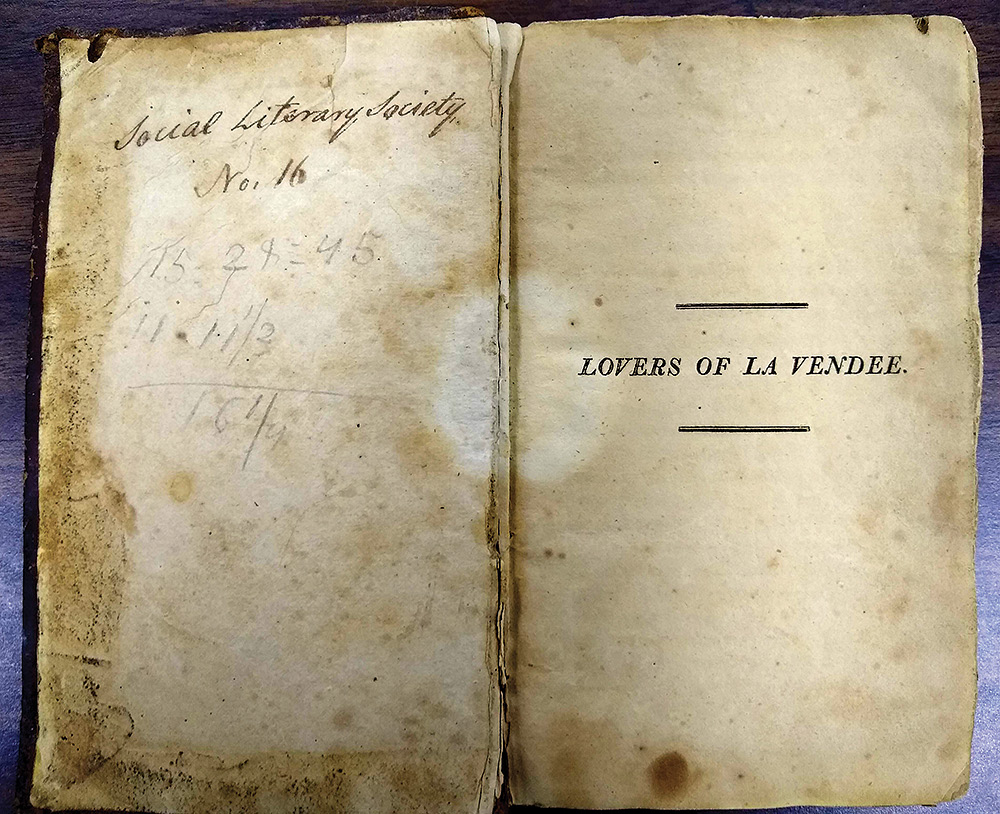 Social Literary Society.
No. 16
15
= 45
11 . 11 1/2
16 1/4
LOVERS OF LA VENDEE.